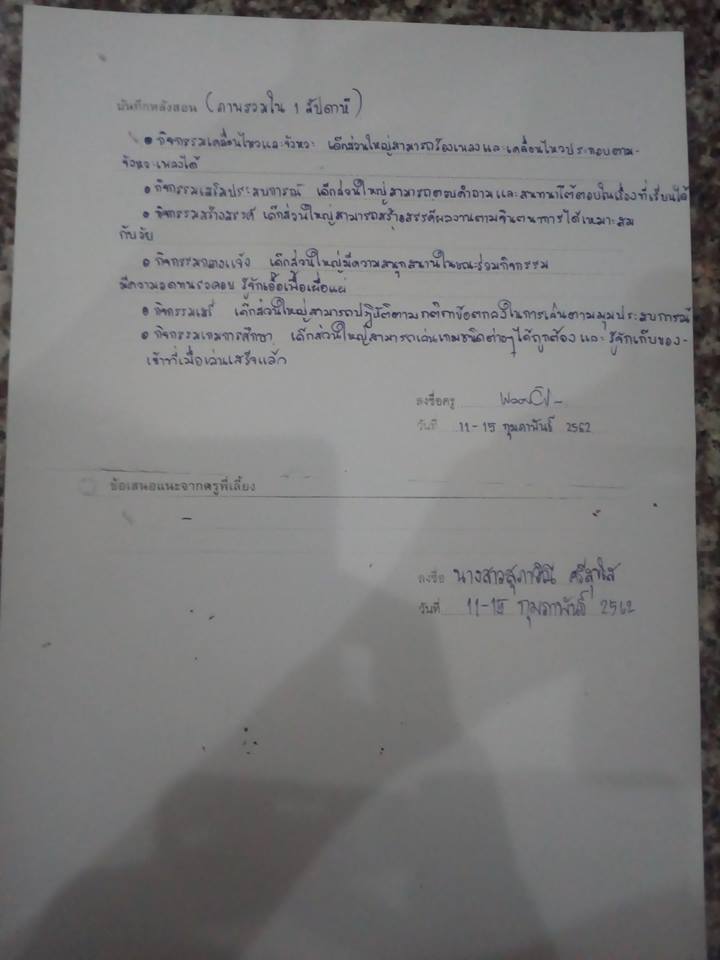 บันทึกหลังสอน (ภาพรวมใน 1 สัปดาห์)
• กิจกรรมเคลื่อนไหวและจังหวะ เด็กส่วนใหญ่สามารถร้องเพลงและเคลื่อนไหวประกอบตาม-
จังหวะเพลงได้
• กิจกรรมเสริมประสบการณ์ เด็กส่วนใหญ่สามารถตอบคำถามและสนทนาโต้ตอบในเรื่องที่เรียนได้
• กิจกรรมสร้างสรรค์ เด็กส่วนใหญ่สามารถสร้างสรรค์ผลงานตามจินตนาการได้เหมาะสม
กับวัย
• กิจกรรมกลางแจ้ง เด็กส่วนใหญ่มีความสนุกสนานในขณะร่วมกิจกรรม
มีความอดทนรอคอย รู้จักเอื้อเฟื้อเผื่อแผ่
• กิจกรรมเสรี เด็กส่วนใหญ่สามารถปฏิบัติตามกติกาข้อตกลงในการเล่นตามมุมประสบการณ์
• กิจกรรมเกมการศึกษา เด็กส่วนใหญ่สามารถเล่นเกมชนิดต่างๆได้ถูกต้อง และ รู้จักเก็บของ-
เข้าที่เมื่อเล่นเสร็จแล้ว
ลงชื่อครู
วันที่ 11-15 กุมภาพันธ์ 2562
ข้อเสนอแนะจากครูพี่เลี้ยง
-
ลงชื่อ นางสาวสุภาวิณี ศรีสุขใส
วันที่ 11-15 กุมภาพันธ์ 2562